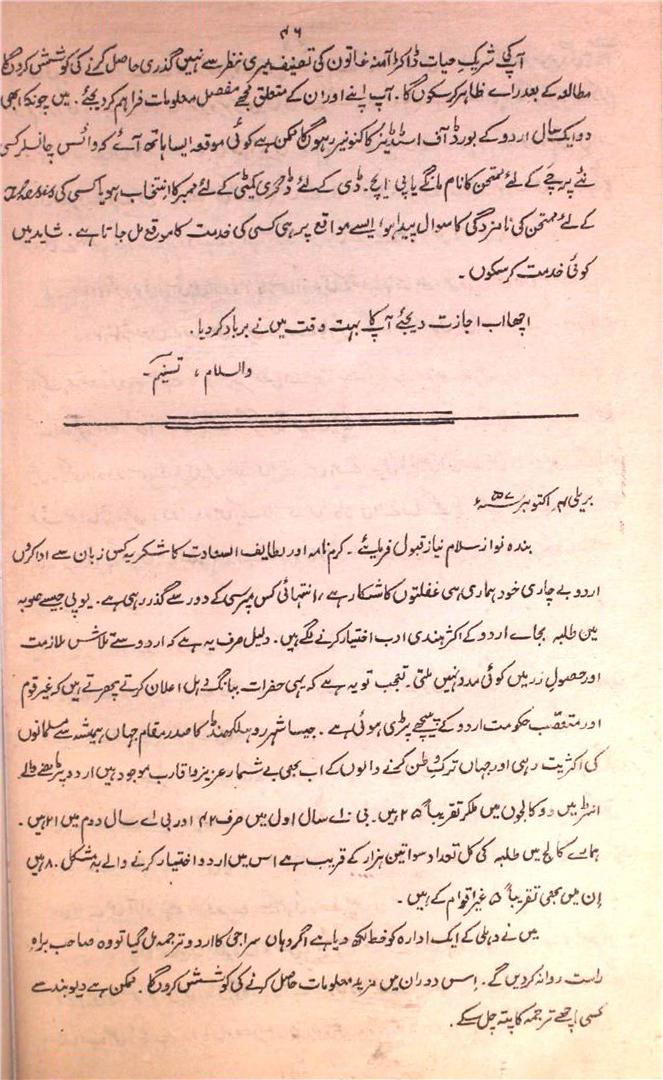 ۴۶
آپ کی شریکِ حیات ڈاکٹر آمنہ خاتون کی تصنیف میری نظر سے نہیں گذری حاصل کرنے کی کوشش کروں گا
مطالعہ کے بعد راے ظاہر کرسکوں گا۔ آپ اپنے اور ان کے متعلق مجھے مفصل معلومات فراہم کردیجئے۔ میں چونکہ ابھی
دو ایک سال اردو کے بورڈ آف اسٹڈیز کا کنوینر رہوں گا ممکن ہے کوئی موقعہ ایسا ہاتھ آئے کہ وائس چانسلر کسی
نئے پرچے کے لئے ممتحن کا نام مانگے یا پی ایچ۔ ڈی کے لئے ڈگری کمیٹی کے لئے ممبر کا انتخاب ہو یا کسی کی thesis
کے لئے ممتحن کی نامزدگی کا سوال پیدا ہو، ایسے مواقع پر ہی کسی کی خدمت کا موقع مل جاتا ہے۔ شاید میں
کوئی خدمت کرسکوں۔
اچھا اب اجازت دیجئے آپ کا بہت وقت میں نے برباد کردیا۔
والسلام، تسنیم۔
بریلی ۴؍ اکتوبر ۵۷ء
بندہ نواز سلام نیاز قبول فرمائیے۔ کرم نامہ اور لطایف السعادت کا شکریہ کس زبان سے ادا کروں
اردو بے چاری خود ہماری ہی غفلتوں کا شکار ہے، انتہائی کس مپرسی کے دور سے گذر رہی ہے۔ یو پی جیسے صوبہ
میں طلبہ بجاے اردو کے اکثر ہندی ادب اختیار کرنے لگے ہیں۔ دلیل صرف یہ ہے کہ اردو سے تلاشِ ملازمت
اور حصولِ زر میں کوئی مدد نہیں ملتی۔ تعجب تو یہ ہے کہ یہی حضرات ببانگِ دہل اعلان کرتے پھرتے ہیں کہ غیر قوم
اور متعصب حکومت اردو کے پیچھے پڑی ہوئی ہے۔ جیسا شہر روہیلکھنڈ کا صدر مقام جہاں ہمیشہ سے مسلمانوں
کی اکثریت رہی اور جہاں ترکِ وطن کرنے والوں کے اب بھی بے شمار عزیز و اقارب موجود ہیں اردو پڑھنے والے
انٹر میں دو کالجوں میں ملکر تقریباً ۲۵ ہیں۔ بی۔ اے سال اول میں صرف ۴۲ اور بی اے سال دوم میں ۲۱ ہیں۔
ہمارے کالج میں طلبہ کی کل تعداد سوا تین ہزار کے قریب ہے اس میں اردو اختیار کرنے والے بہ مشکل ۸۰ ہیں
اِن میں بھی تقریباً ۵ غیر اقوام کے ہیں۔
میں نے دہلی کے ایک ادارہ کو خط لکھ دیا ہے اگر وہاں سراجی کا اردو ترجمہ مل گیا تو وہ صاحب براہِ
راست روانہ کردیں گے۔ اِس دوران میں مزید معلومات حاصل کرنے کی کوشش کروں گا۔ ممکن ہے دیوبند سے
کسی اچھے ترجمہ کا پتہ چل سکے۔